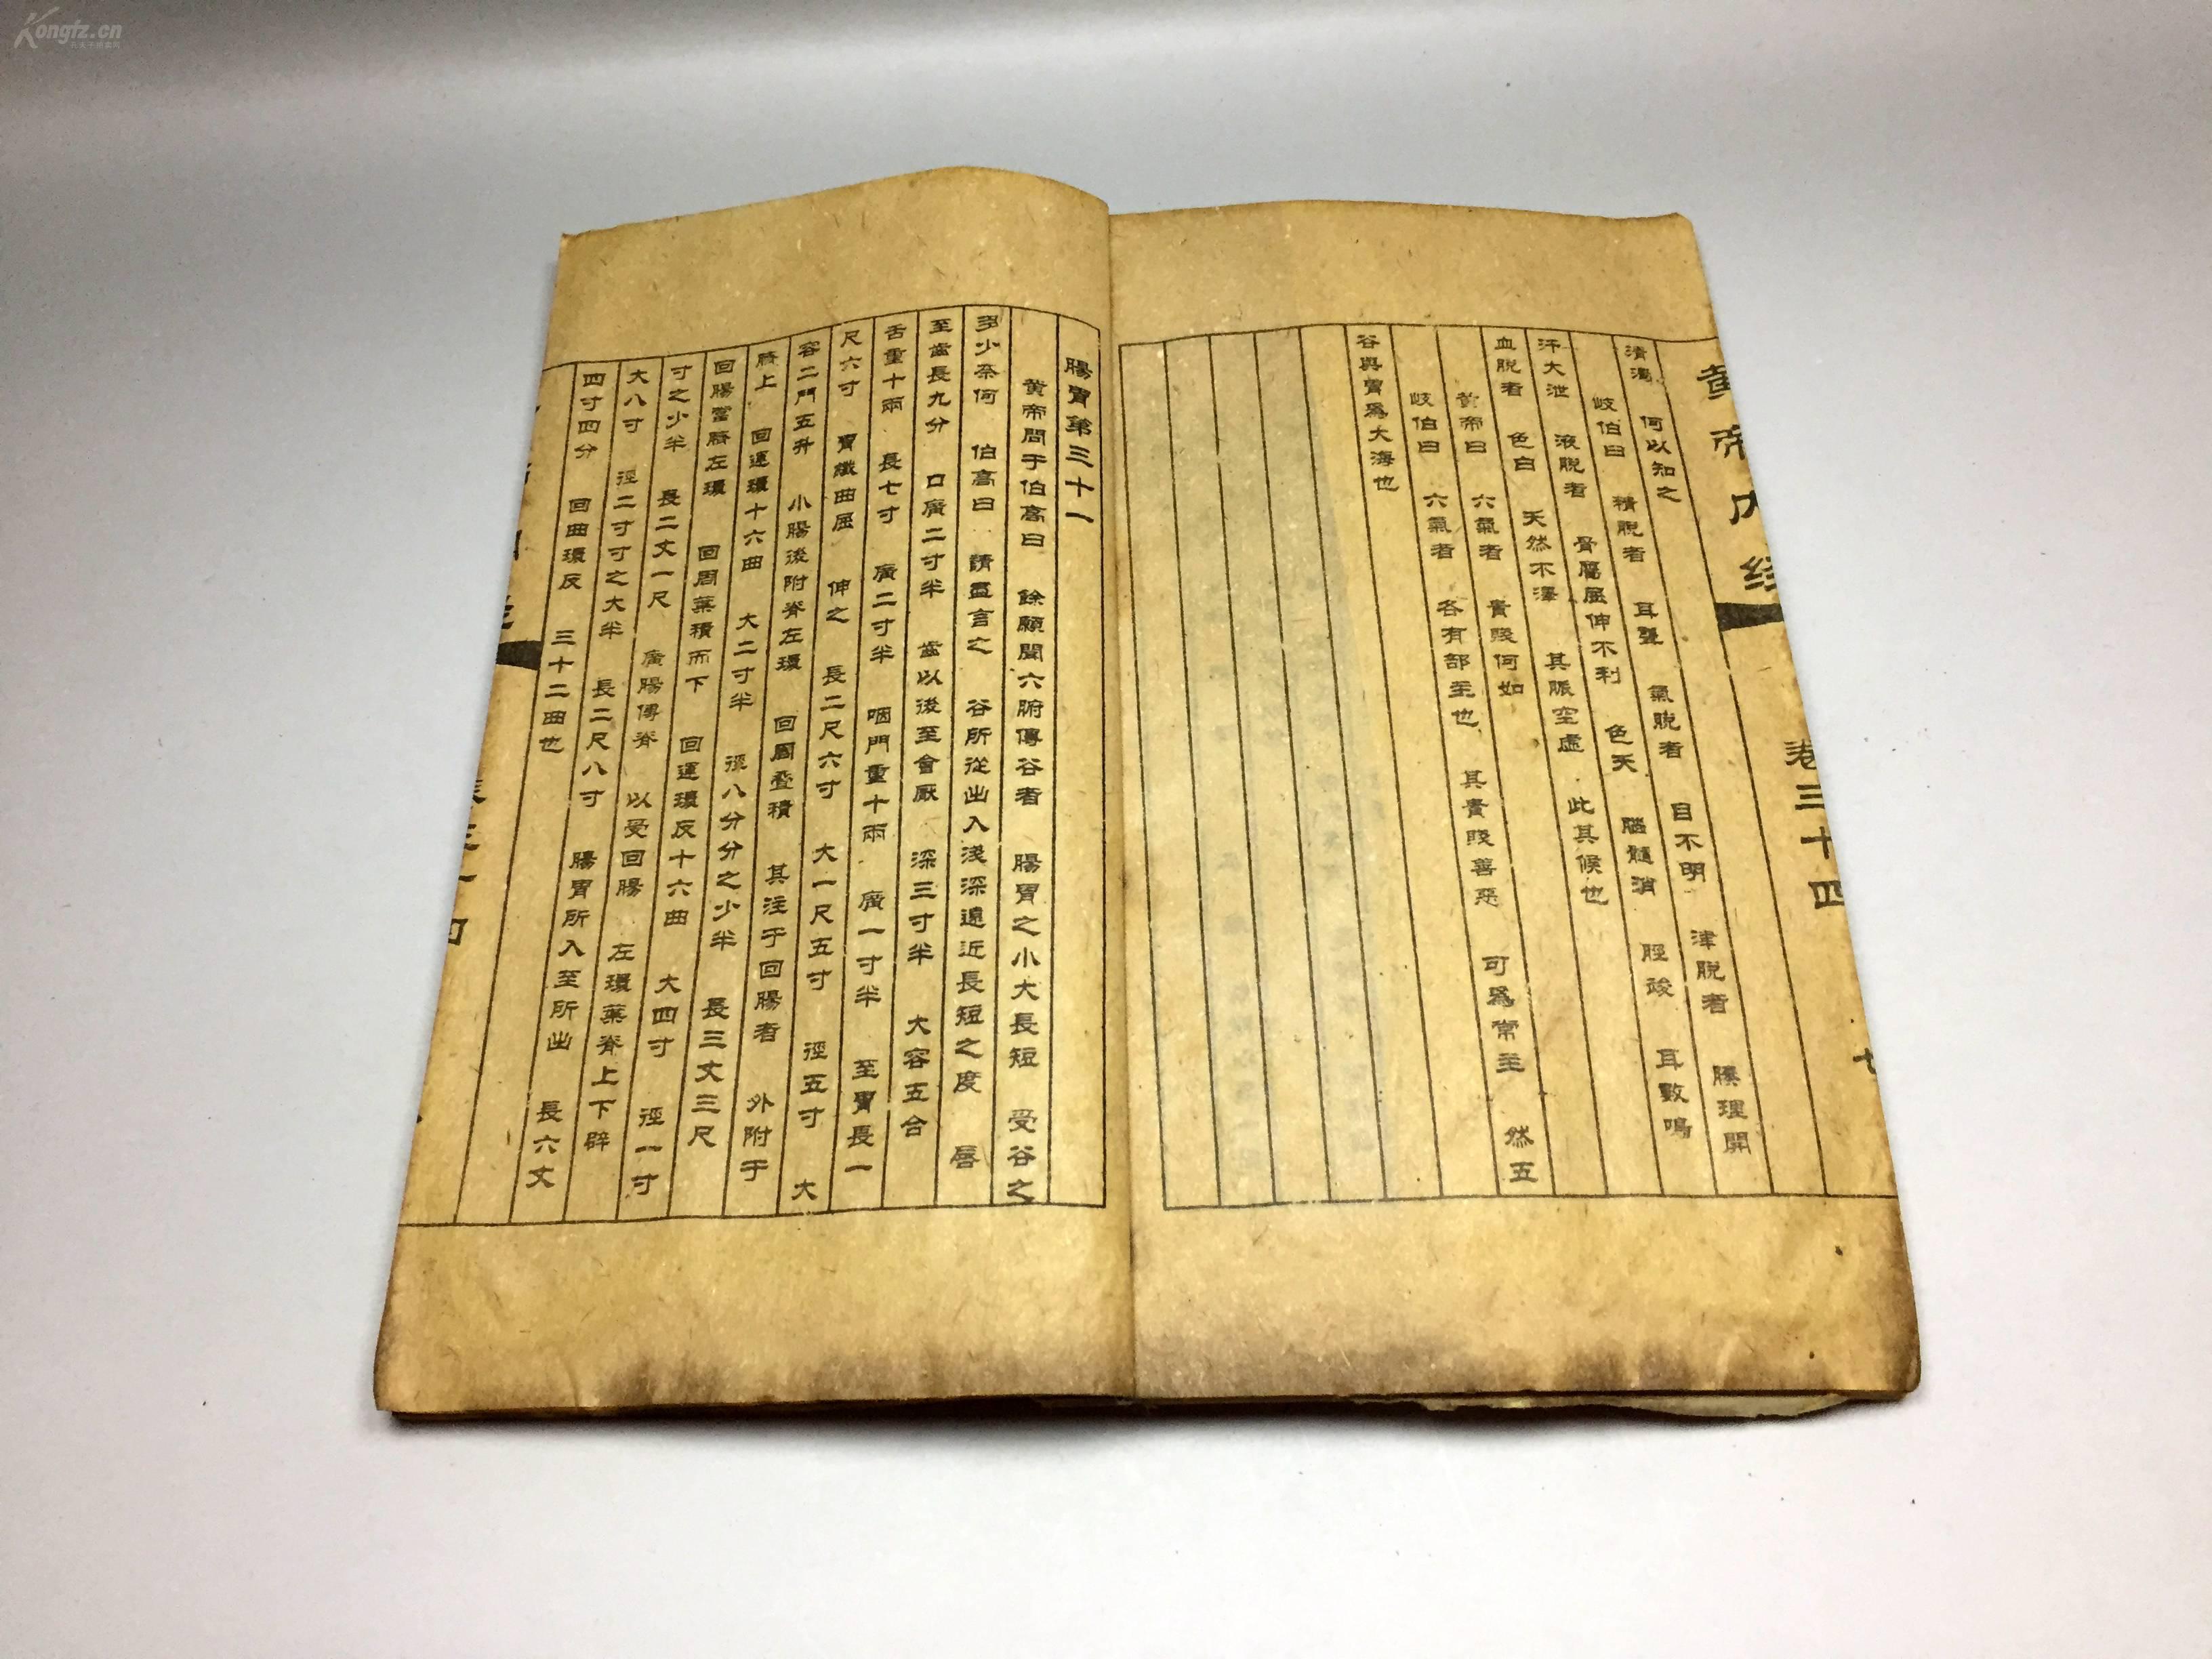 Kongfz.cn
黄帝内经 卷三十四
清濁 何以知之
岐伯曰 精脱者 耳聾 氣脱者 目不明 津脱者 腠理開
汗大泄 液脱者 骨屬屈伸不利 色夭 腦髓消 脛竣 耳數鳴
血脱者 色白 夭然不澤 其脈空虛 此其候也
黄帝曰 六氣者 貴賤何如
岐伯曰 六氣者 各有部主也 其貴賤善惡 可爲常主 然五
谷與胃爲大海也
腸胃第三十一
黄帝問于伯高曰 餘願聞六腑傳谷者 腸胃之小大長短 受谷之
多少奈何 伯高曰 請盡言之 谷所從出入淺深遠近長短之度 唇
至齒長九分 口廣二寸半 齒以後至會厭 深三寸半 大容五合
舌重十兩 長七寸 廣二寸半 咽門重十兩 廣一寸半 至胃長一
尺六寸 胃纖曲屈 伸之 長二尺六寸 大一尺五寸 徑五寸 大
容二鬥五升 小腸後附脊左環 回周叠積 其注于回腸者 外附于
臍上 回運環十六曲 大二寸半 徑八分分之少半 長三丈三尺
回腸當臍左環 回周葉積而下 回運環反十六曲 大四寸 徑一寸
寸之少半 長二丈一尺 廣腸傳脊 以受回腸 左環葉脊上下辟
大八寸 徑二寸寸之大半 長二尺八寸 腸胃所入至所出 長六丈
四寸四分 回曲環反 三十二曲也